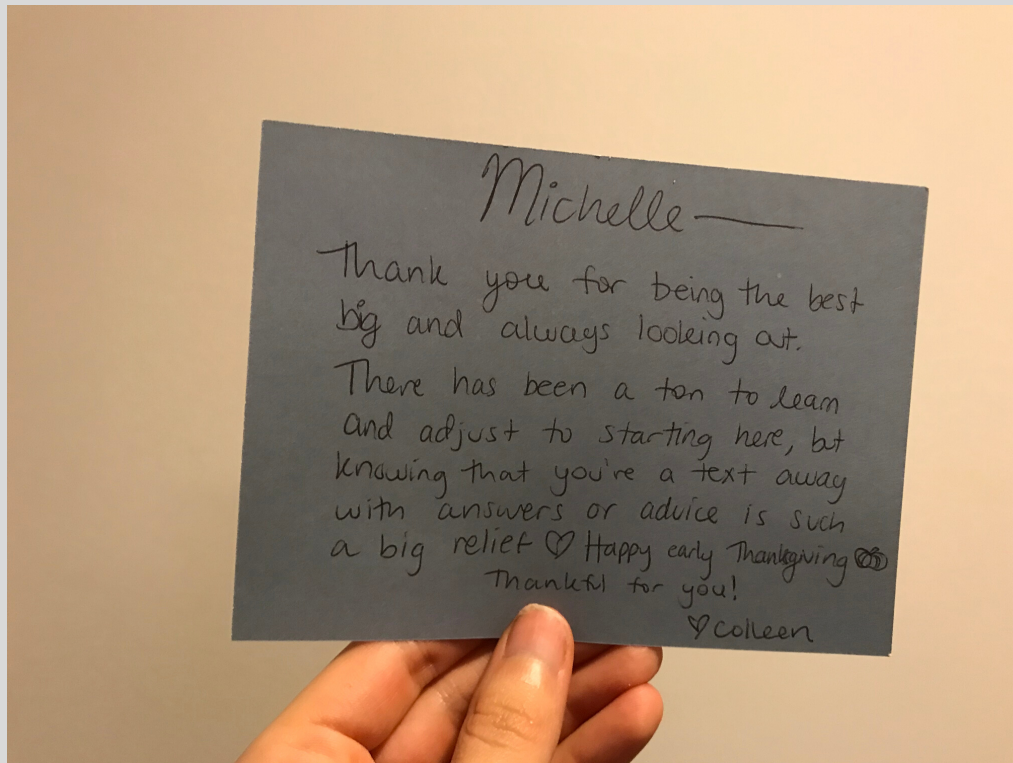 Michelle —
Thank you for being the best
big and always looking out.
There has been a ton to learn
and adjust to starting here, but
knowing that you're a text away
with answers or advice is such
a big relief ♡ Happy early Thanksgiving
Thankful for you!
♡ Colleen